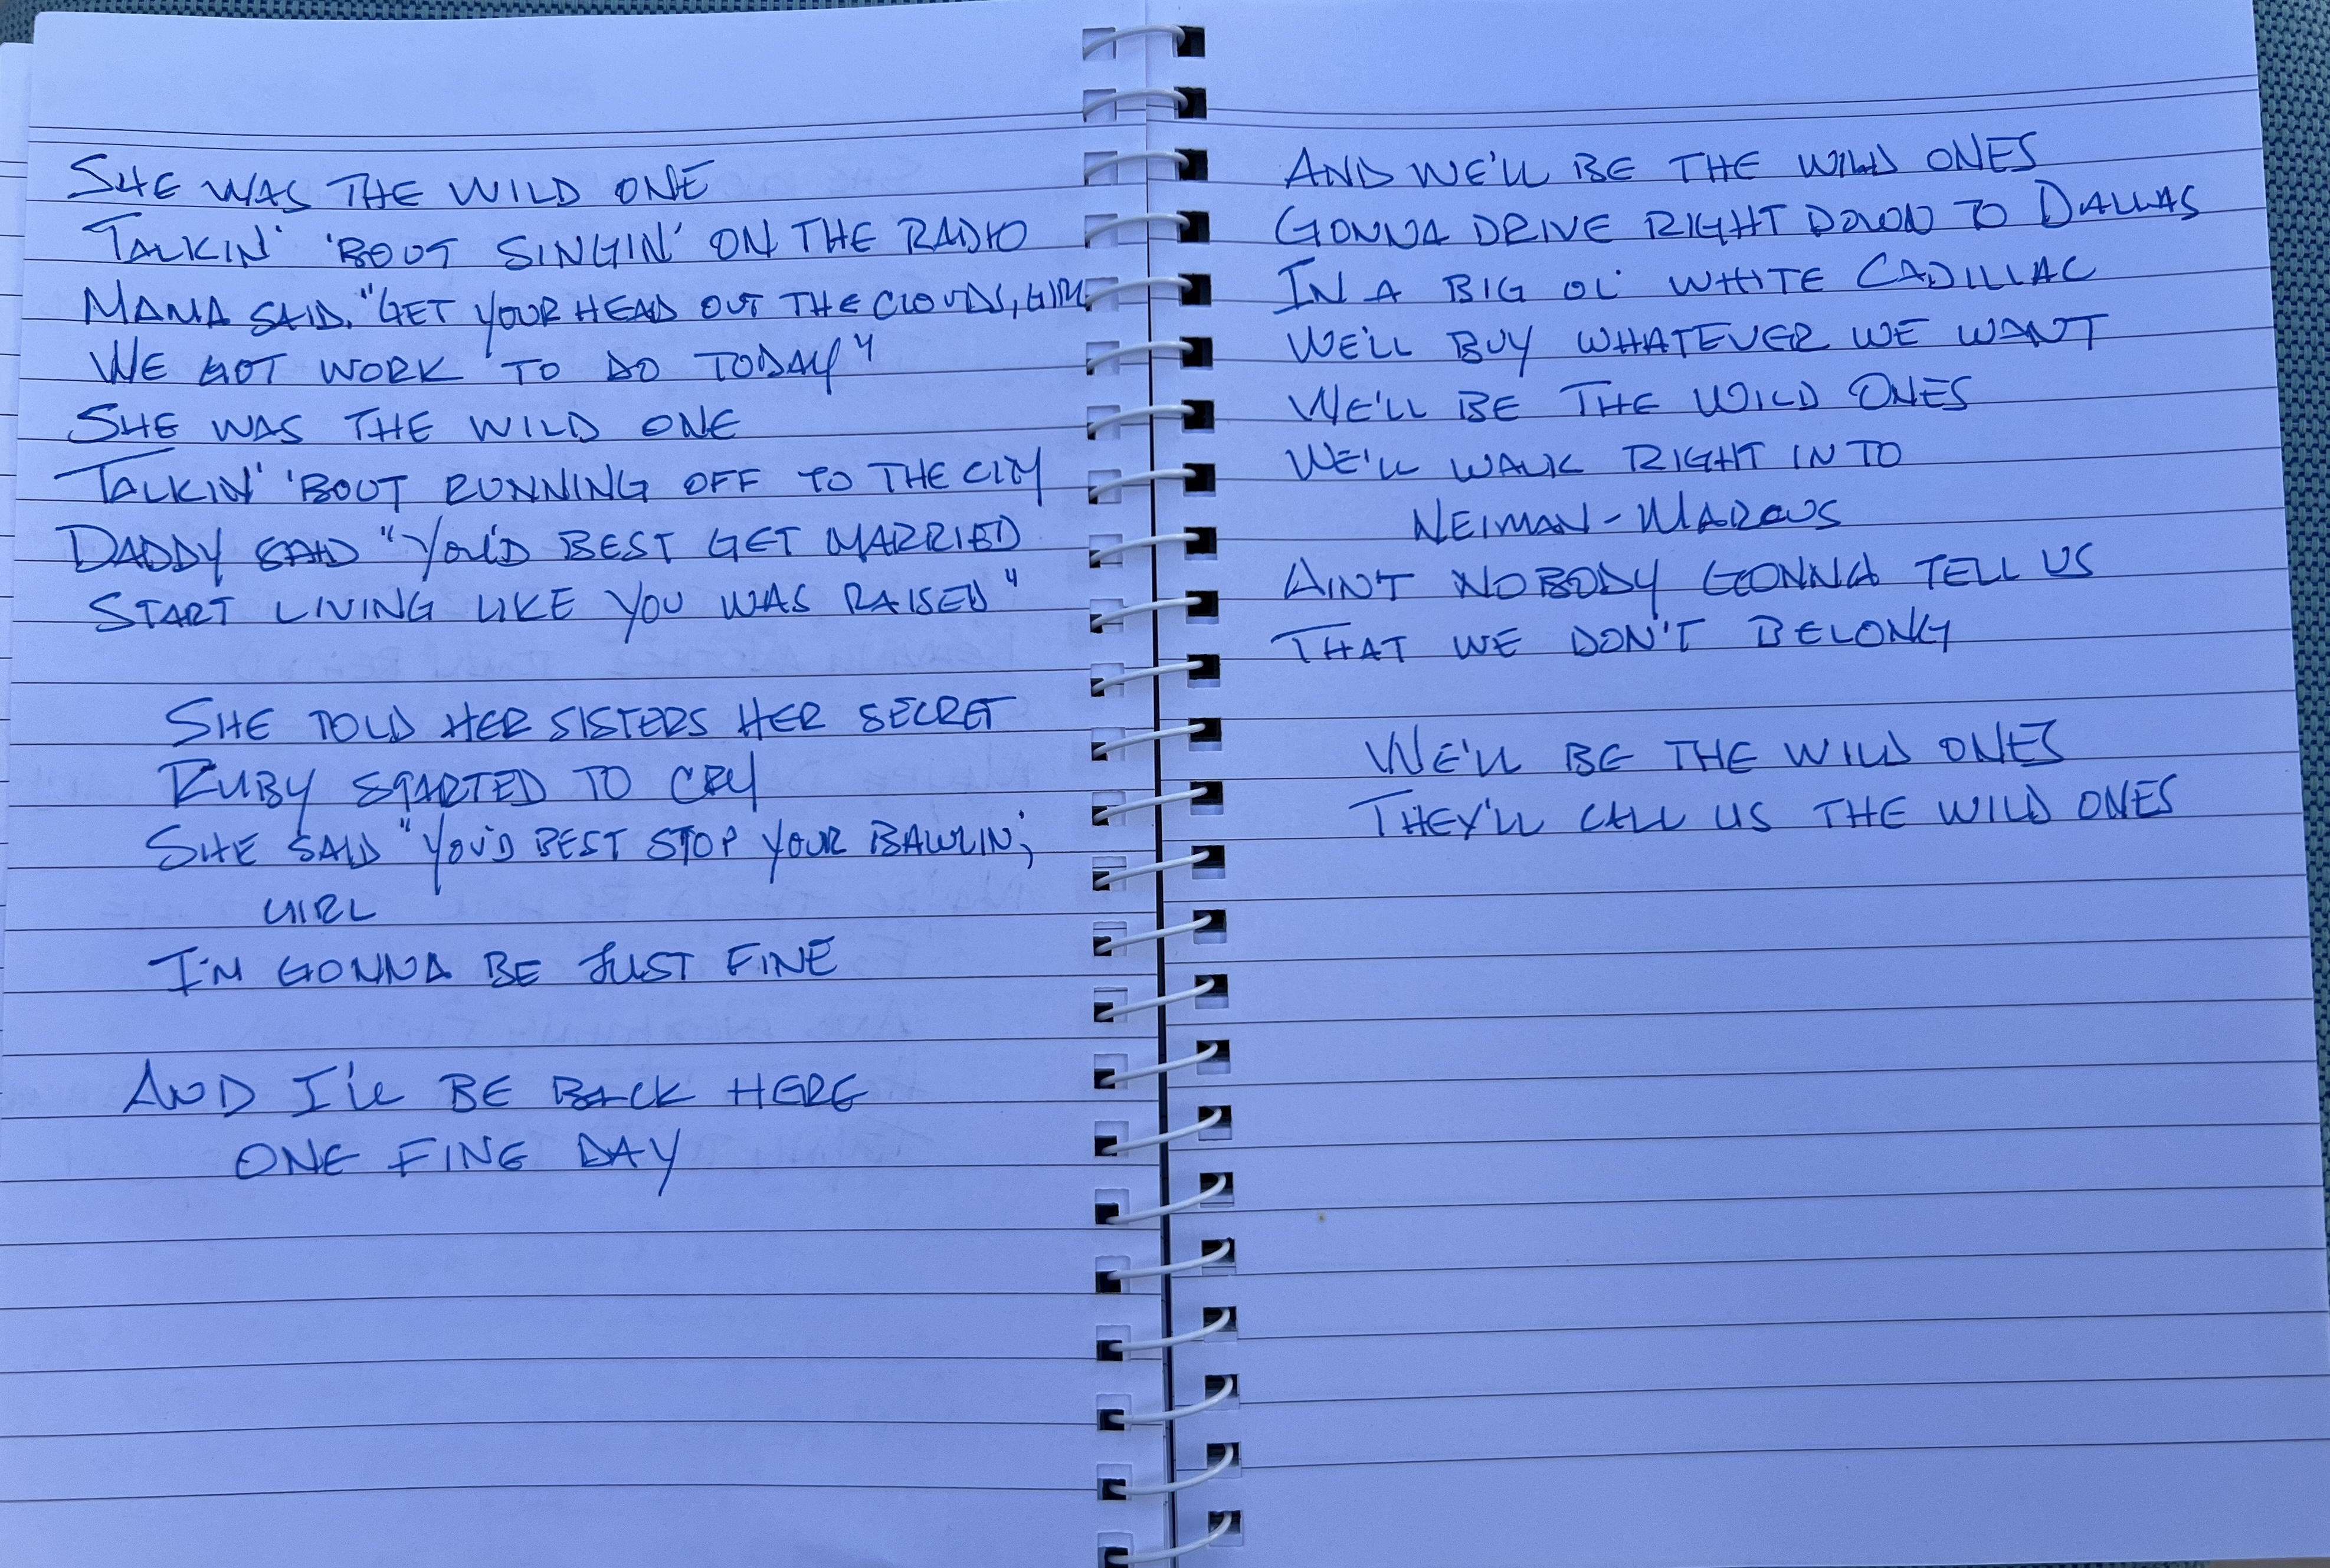 SHE WAS THE WILD ONE
TALKIN' 'BOUT SINGIN' ON THE RADIO
MAMA SAID, "GET YOUR HEAD OUT THE CLOUDS, GIRL
WE GOT WORK TO DO TODAY"
SHE WAS THE WILD ONE
TALKIN' 'BOUT RUNNING OFF TO THE CITY
DADDY SAID "YOU'D BEST GET MARRIED
START LIVING LIKE YOU WAS RAISED"
SHE TOLD HER SISTERS HER SECRET
RUBY STARTED TO CRY
SHE SAID "YOU'D BEST STOP YOUR BAWLIN',
GIRL
I'M GONNA BE JUST FINE
AND I'LL BE BACK HERE
ONE FINE DAY
AND WE'LL BE THE WILD ONES
GONNA DRIVE RIGHT DOWN TO DALLAS
IN A BIG OL' WHITE CADILLAC
WE'LL BUY WHATEVER WE WANT
WE'LL BE THE WILD ONES
WE'LL WALK RIGHT INTO
NEIMAN-MARCUS
AIN'T NOBODY GONNA TELL US
THAT WE DON'T BELONG
WE'LL BE THE WILD ONES
THEY'LL CALL US THE WILD ONES